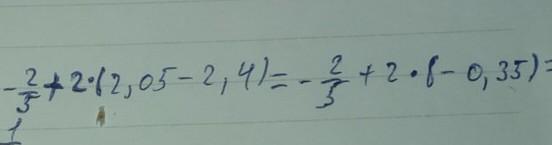 -2/5 + 2·(2,05-2,4) = -2/5 + 2·(-0,35) =
1